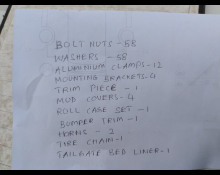 BOLT NUTS - 58
WASHERS - 58
ALUMINIUM CLAMPS - 12
MOUNTING BRACKETS - 4
TRIM PIECE - 1
MUD COVERS - 4
ROLL CAGE SET - 1
BUMPER TRIM - 1
HORNS - 2
TYRE CHAIN - 1
TAILGATE BED LINER - 1